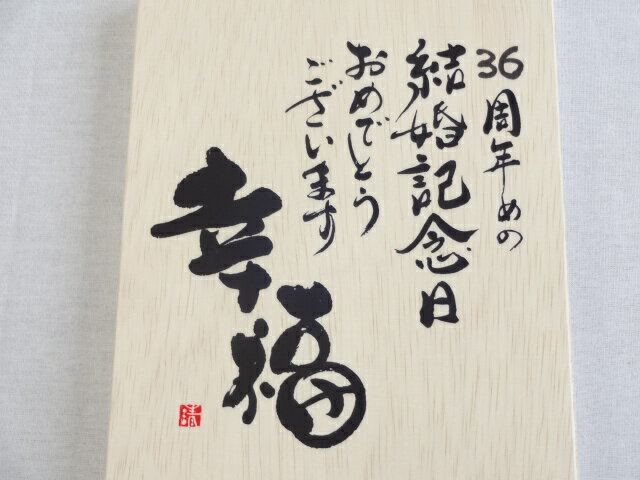 36周年めの
結婚記念日
おめでとう
ございます
幸福